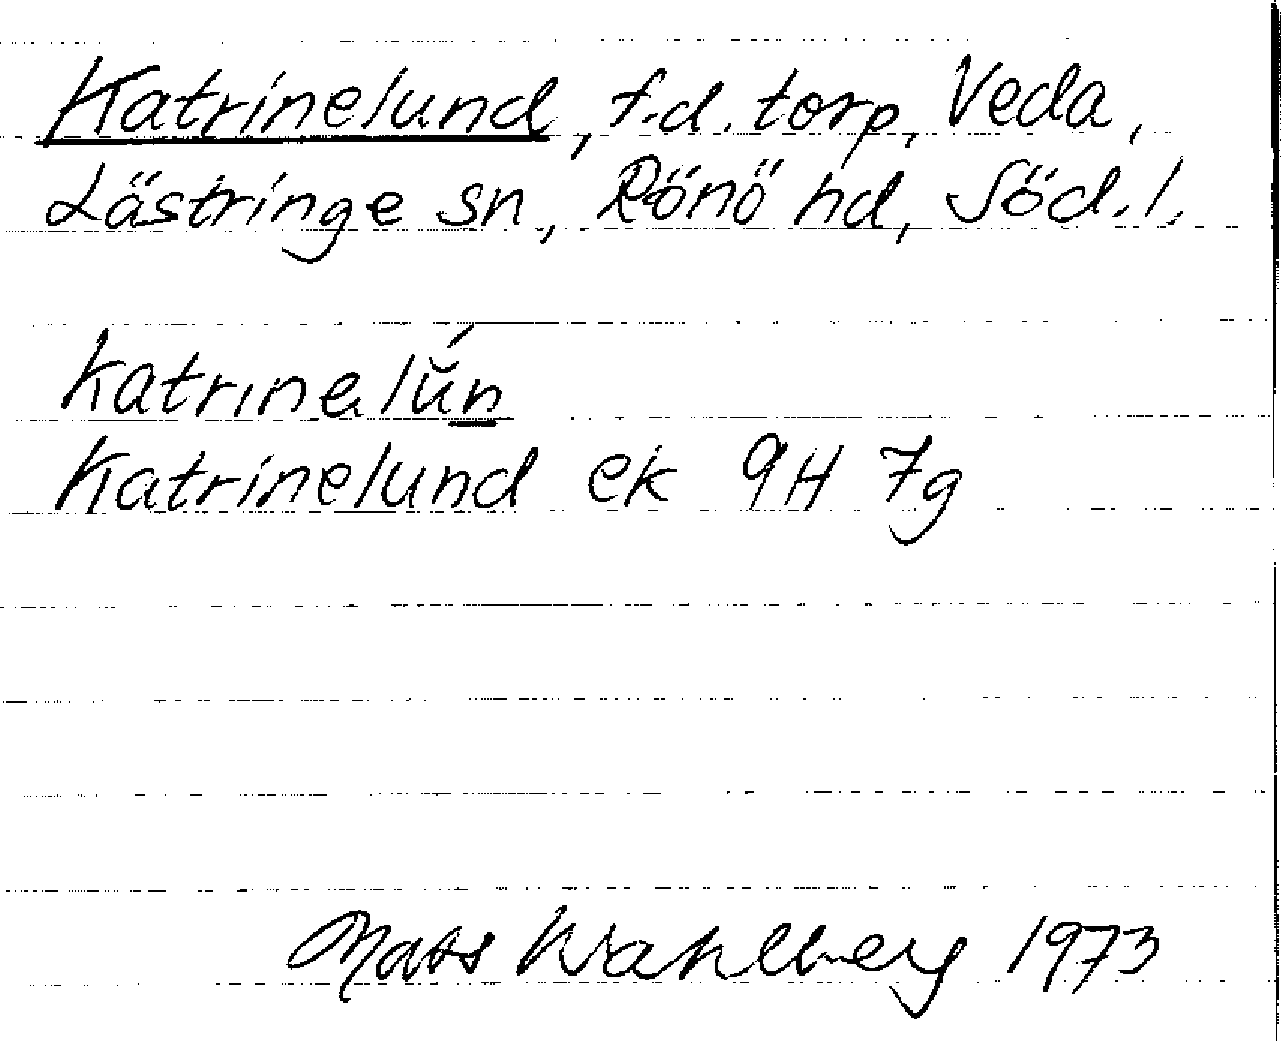 Katrinelund, f.d. torp, Veda,
Lästringe sn, Rönö hd, Söd.l.
katrinelŭ́n
Katrinelund ek 9H 7g
Mats Wahlberg 1973